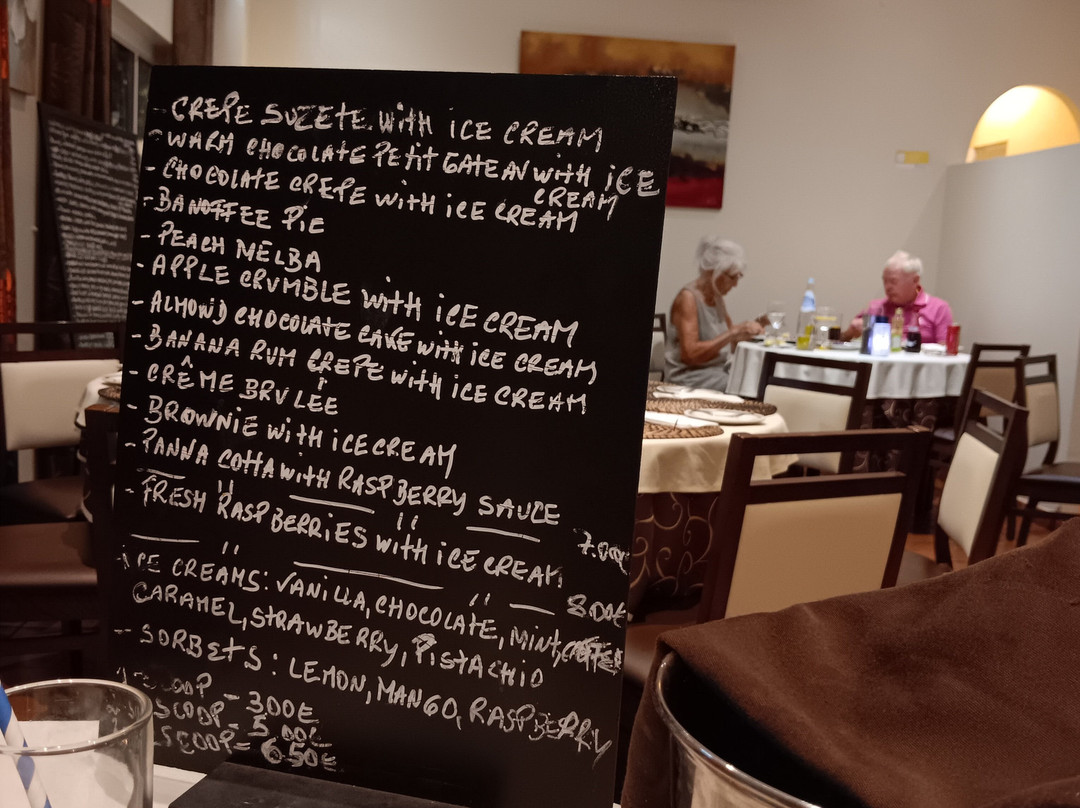 - CREPE SUZETE WITH ICE CREAM
- WARM CHOCOLATE PETIT GATEAU WITH ICE
CREAM
- CHOCOLATE CREPE WITH ICE CREAM
- BANOFFEE PIE
- PEACH MELBA
- APPLE CRUMBLE WITH ICE CREAM
- ALMOND CHOCOLATE CAKE WITH ICE CREAM
- BANANA RUM CREPE WITH ICE CREAM
- CRÊME BRULÉE
- BROWNIE WITH ICE CREAM
- PANNA COTTA WITH RASPBERRY SAUCE
7.00€
- FRESH RASPBERRIES WITH ICE CREAM
8.00€
ICE CREAMS: VANILLA, CHOCOLATE, MINT,
CARAMEL, STRAWBERRY, PISTACHIO
- SORBETS: LEMON, MANGO, RASPBERRY
1 SCOOP - 3.00€
SCOOP - 5.00€
SCOOP = 6.50€